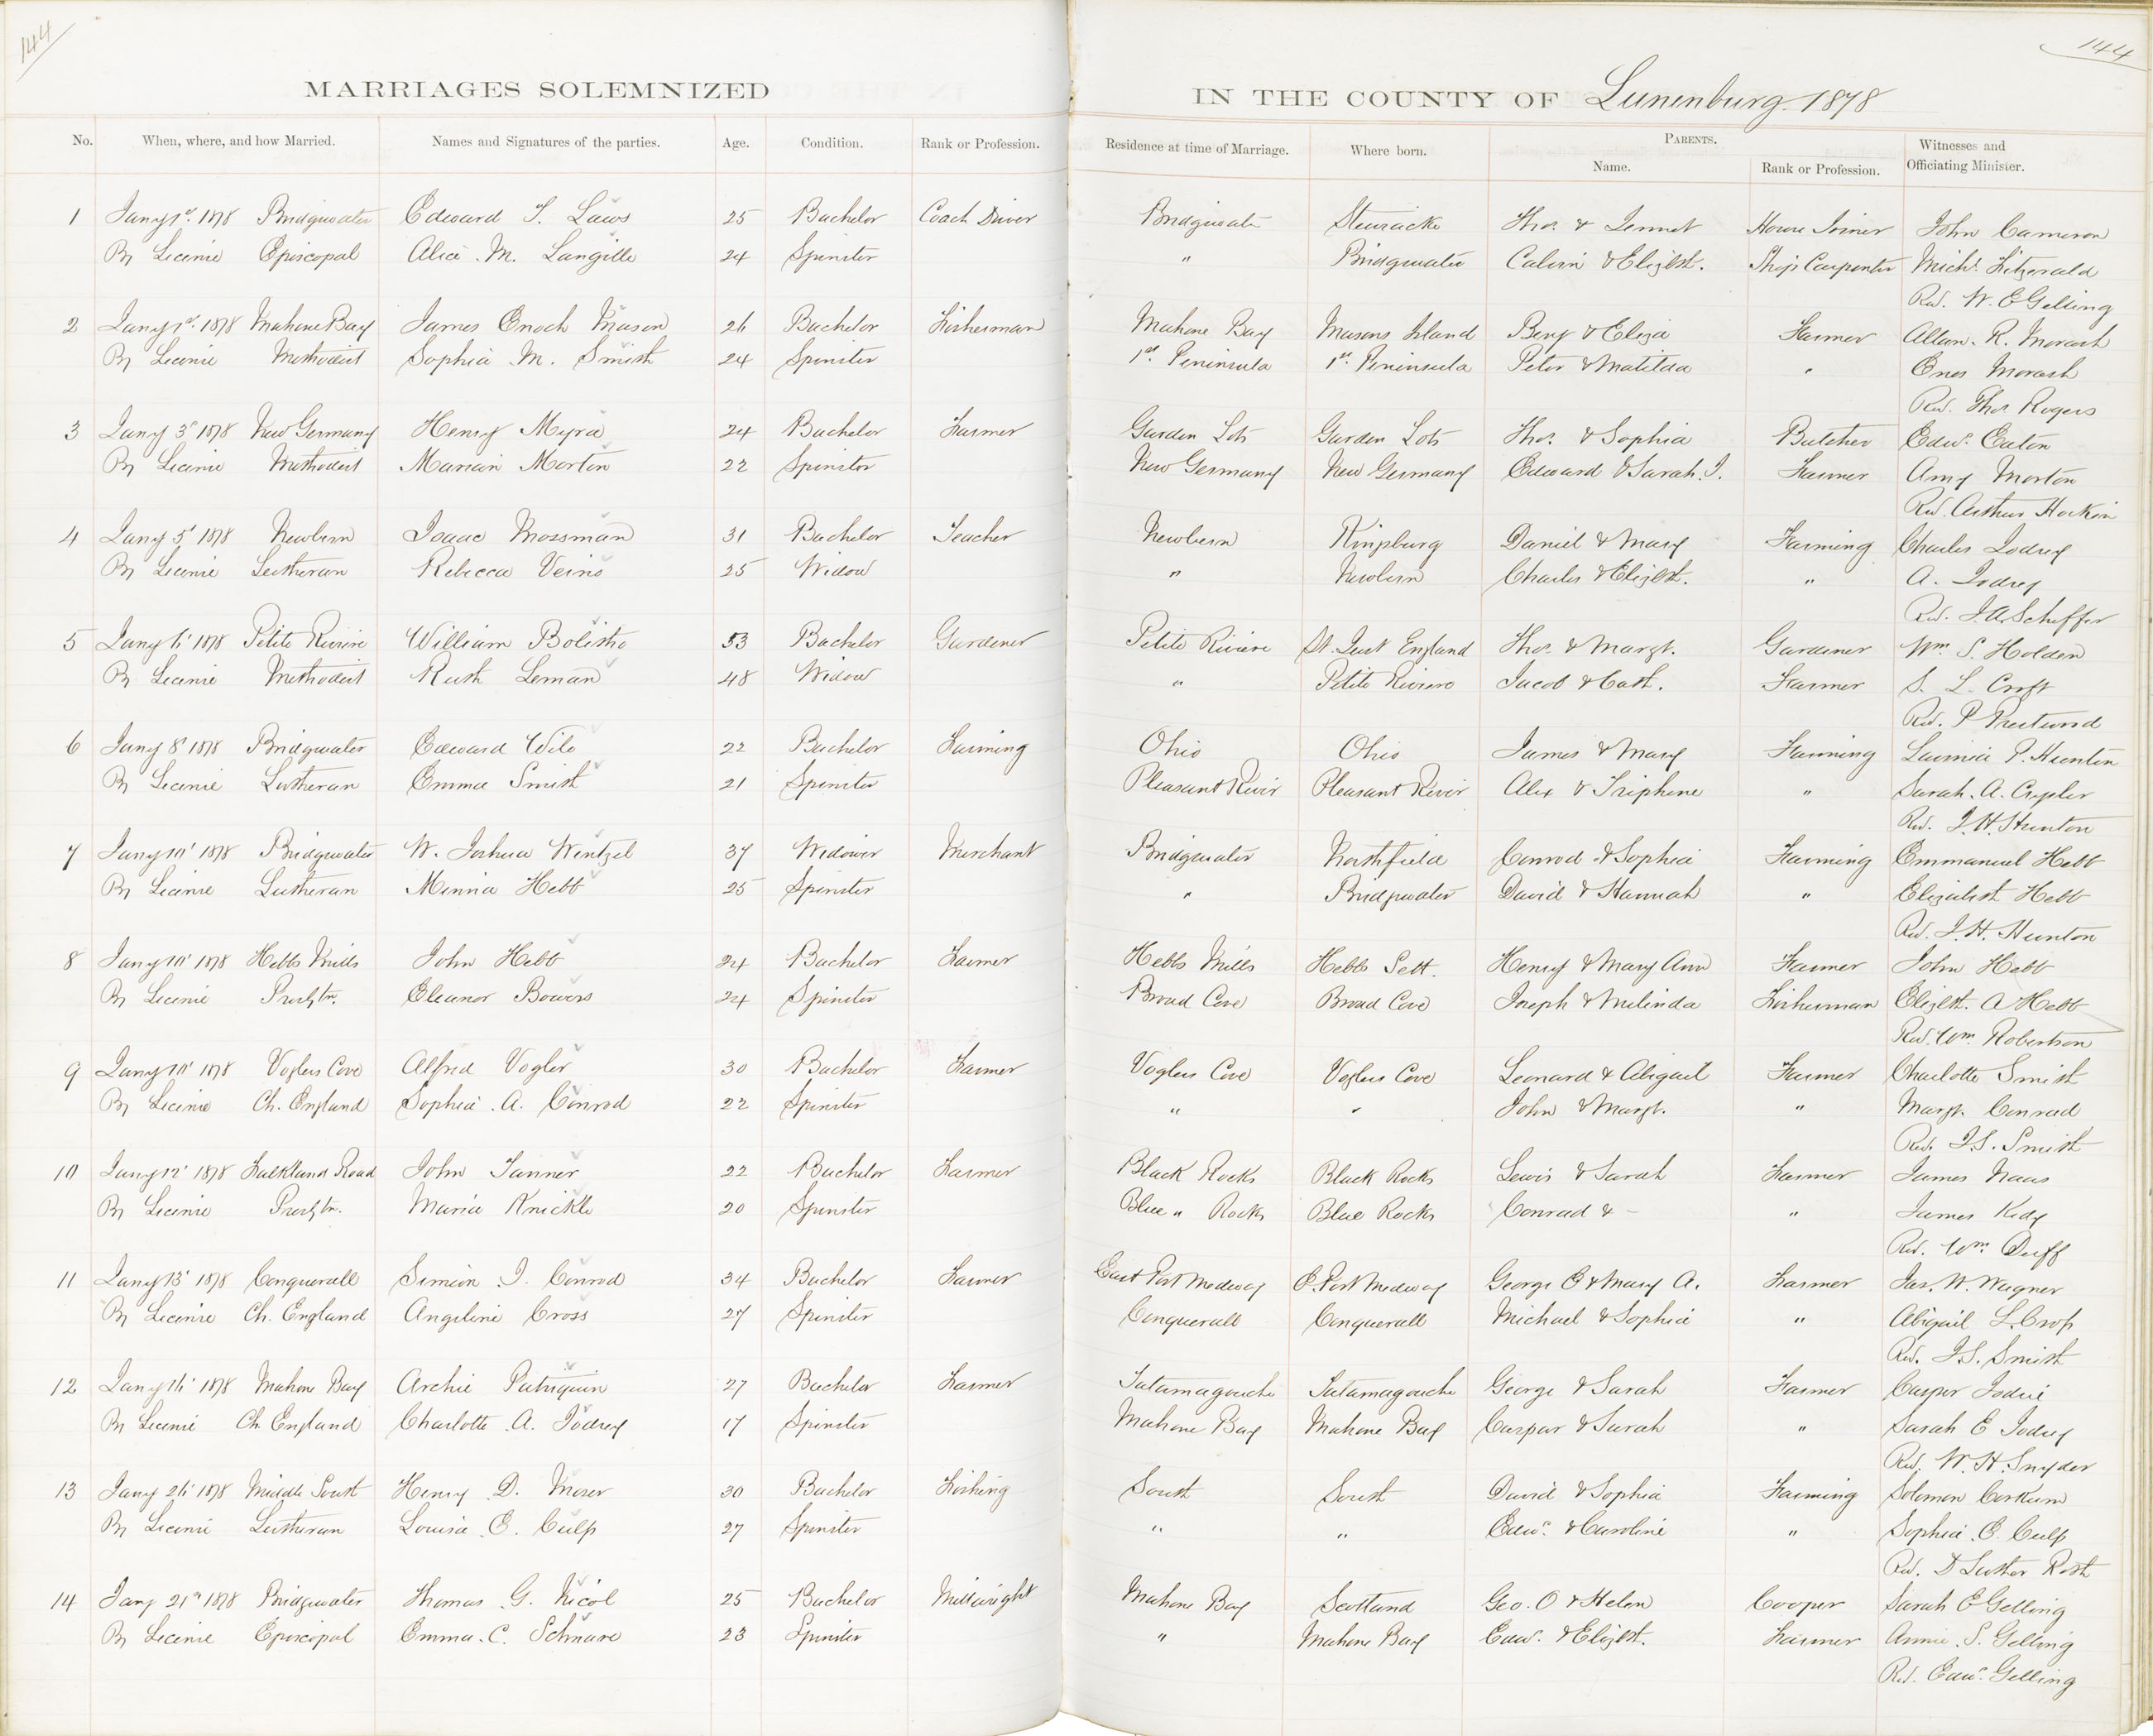 144
144
MARRIAGES SOLEMNIZED
IN THE COUNTY OF Lunenburg. 1878
No. When, where, and how Married. Names and Signatures of the parties. Age. Condition. Rank or Profession. Residence at time of Marriage. Where born. PARENTS. Name. Rank or Profession. Witnesses and Officiating Minister.
1 Jany 1st 1878 Bridgwater Edward T. Laws 25 Bachelor Coach Driver Bridgwater Stewiacke Thos. & Jennet House Joiner John Cameron
By Licence Episcopal Alice M. Langille 24 Spinster " Bridgwater Calvin & Elizbt. Ship Carpenter Michl. Fitzerald
Rev. W. E Gelling
2 Jany 1st 1878 Mahone Bay James Enoch Mason 26 Bachelor Fisherman Mahone Bay Masons Island Benj & Eliza Farmer Allan. R. Morash
By Licence Methodist Sophia M. Smith 24 Spinster 1st Peninsula 1st Peninsula Peter & Matilda " Enos Morash
Rev. Thos Rogers
3 Jany 3d 1878 New Germany Henry Myra 24 Bachelor Farmer Garden Lots Garden Lots Thos. & Sophia Butcher Edwd. Eaton
By Licence Methodist Marian Morton 22 Spinster New Germany New Germany Edward & Sarah. J. Farmer Amy Morton
Rev. Arthur Hockin
4 Jany 5' 1878 Newburn Isaac Mossman 31 Bachelor Teacher Newburn Kingsburg Daniel & Mary Farming Charles Jodrey
By Licence Lutheran Rebecca Veino 25 Widow " Newburn Charles & Elizbt. " A. Jodrey
Rev. J. A. Scheffer
5 Jany 6' 1878 Petite Riviere William Bolitho 53 Bachelor Gardener Petite Riviere St. Just England Thos. & Margt. Gardener Wm S. Holden
By Licence Methodist Ruth Leman 48 Widow " Petite Riviere Jacob & Cath. Farmer S. L. Croft
Rev. P Prestwood
6 Jany 8' 1878 Bridgwater Edward Wile 22 Bachelor Farming Ohio Ohio James & Mary Farming P. Hunton
By Licence Lutheran Emma Smith 21 Spinster Pleasant River Pleasant River Alex & Triphene " Sarah. A.
Rev. J. H. Hunton
7 Jany 10' 1878 Bridgwater W. Joshua Wentzel 37 Widower Merchant Bridgwater Northfield Conrod & Sophia Farming Emmanuel Hebb
By Licence Lutheran Minnia Hebb 25 Spinster " Bridgwater David & Hannah " Elizabeth Hebb
Rev. J. H. Hunton
8 Jany 10' 1878 Hebbs Mills John Hebb 24 Bachelor Farmer Hebbs Mills Hebbs Sett. Henry & Mary Ann Farmer John Hebb
By Licence Presbtn. Eleanor Bowers 24 Spinster Broad Cove Broad Cove Joseph & Melinda Fisherman Elizbt. A Hebb
Rev. Wm. Robertson
9 Jany 10' 1878 Voglers Cove Alfred Vogler 30 Bachelor Farmer Voglers Cove Voglers Cove Leonard & Abigail Farmer Charlotte Smith
By Licence Ch. England Sophia A. Conrod 22 Spinster " " John & Margt. " Margt. Conrad
Rev. J. S. Smith
10 Jany 12' 1878 Falkland Road John Tanner 22 Bachelor Farmer Black Rocks Black Rocks Lewis & Sarah Farmer James Naas
By Licence Presbtn. Maria Knickle 20 Spinster Blue " Rocks Blue Rocks Conrad & - " James Kedy
Rev. Wm. Duff
11 Jany 13' 1878 Conquerall Simeon J. Conrod 34 Bachelor Farmer East Port Medway E. Port Medway George O & Mary A. Farmer Jas. W. Wagner
By Licence Ch. England Angeline Cross 27 Spinster Conquerall Conquerall Michael & Sophia " Abigail L. Cross
Rev. J. S. Smith
12 Jany 16' 1878 Mahone Bay Archie Patriquin 27 Bachelor Farmer Tatamagouche Tatamagouche George & Sarah Farmer Casper Jodrie
By Licence Ch. England Charlotte A. Jodrey 17 Spinster Mahone Bay Mahone Bay Caspar & Sarah " Sarah E Jodrey
Rev. W. H. Snyder
13 Jany 26' 1878 Middle South Henry D. Moser 30 Bachelor Fishing South South David & Sophia Farming Solomon Corkum
By Licence Lutheran Louisa E. Culp 27 Spinster " " Edwd. & Caroline " Sophia E. Culp
Rev. D Luther Roth
14 Jany 21st 1878 Bridgwater Thomas G. Nicol 25 Bachelor Millwright Mahone Bay Scotland Geo. O & Helen Cooper Sarah E Gelling
By Licence Episcopal Emma. C. Schnare 23 Spinster " Mahone Bay Edw. & Elizbt. Farmer Annie S. Gelling
Rev. Edwd. Gelling